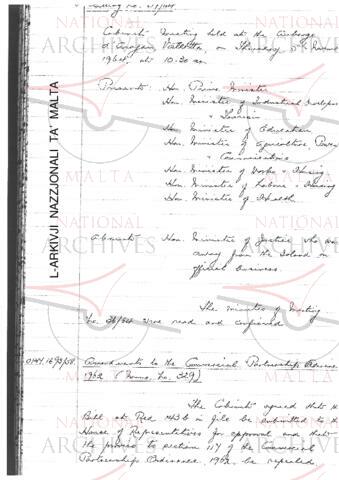 Cabinet Meeting held at the Auberge
d'Aragon, Valletta, on Thursday 5th
1964 at 10.30 am
Present: Hon. Prime Minister
Hon. Minister of Industrial Development
& Tourism
Hon. Minister of Education
Hon. Minister of Agriculture, Power
& Communications
Hon. Minister of Works & Housing
Hon. Minister of Labour &
Hon. Minister of Health.
Absent: Hon. Minister of Justice who was
away from the Island on
official business.
The minutes of Meeting
No. 36/64 were read and confirmed
Amendments to the Commercial Partnerships Ordinance
1962 (Memo. No. 329)
The Cabinet agreed that the
Bill at Red 143b in file be submitted to the
House of Representatives for approval and that
the proviso to section 117 of the Commercial
Partnerships Ordinance, 1962, be repealed.
L-ARKIVJI NAZZJONALI TA' MALTA
NATIONAL
ARCHIVES
MALTA